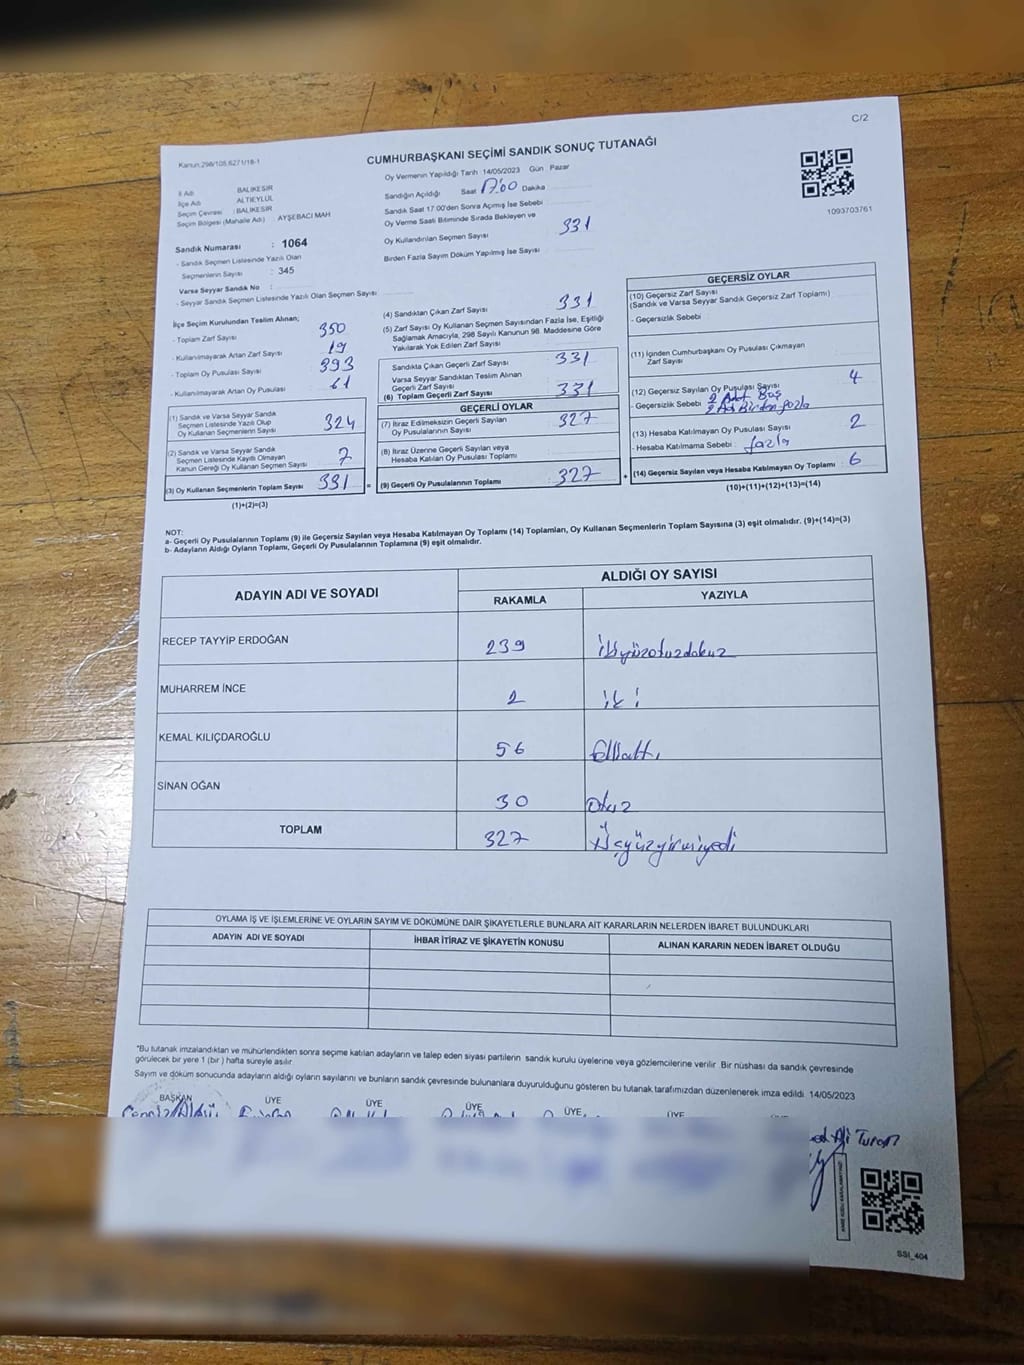 C/2
Kanun:298/105,6271/18-1
CUMHURBAŞKANI SEÇİMİ SANDIK SONUÇ TUTANAĞI
1093703761
İl Adı BALIKESİR
İlçe Adı ALTIEYLÜL
Seçim Çevresi : BALIKESİR
Seçim Bölgesi (Mahalle Adı) : AYŞEBACI MAH
Sandık Numarası : 1064
- Sandık Seçmen Listesinde Yazılı Olan
Seçmenlerin Sayısı : 345
Varsa Seyyar Sandık No :
- Seyyar Sandık Seçmen Listesinde Yazılı Olan Seçmen Sayısı
Oy Vermenin Yapıldığı Tarih 14/05/2023 Gün Pazar
Sandığın Açıldığı Saat 17:00 Dakika
Sandık Saat 17.00'den Sonra Açımış İse Sebebi
Oy Verme Saati Bitiminde Sırada Bekleyen ve
Oy Kullandırılan Seçmen Sayısı 331
Birden Fazla Sayım Döküm Yapılmış İse Sayısı
İlçe Seçim Kurulundan Teslim Alınan;
- Toplam Zarf Sayısı 350
- Kullanılmayarak Artan Zarf Sayısı 19
- Toplam Oy Pusulası Sayısı 393
- Kullanılmayarak Artan Oy Pusulası 61
(1) Sandık ve Varsa Seyyar Sandık
Seçmen Listesinde Yazılı Olup
Oy Kullanan Seçmenlerin Sayısı 324
(2) Sandık ve Varsa Seyyar Sandık
Seçmen Listesinde Kayıtlı Olmayan
Kanun Gereği Oy Kullanan Seçmen Sayısı 7
(3) Oy Kullanan Seçmenlerin Toplam Sayısı 331 =
(1)+(2)=(3)
(4) Sandıktan Çıkan Zarf Sayısı 331
(5) Zarf Sayısı Oy Kullanan Seçmen Sayısından Fazla İse, Eşitliği
Sağlamak Amacıyla, 298 Sayılı Kanunun 98. Maddesine Göre
Yakılarak Yok Edilen Zarf Sayısı
Sandıkta Çıkan Geçerli Zarf Sayısı 331
Varsa Seyyar Sandıktan Teslim Alınan
Geçerli Zarf Sayısı
(6) Toplam Geçerli Zarf Sayısı 331
GEÇERLİ OYLAR
(7) İtiraz Edilmeksizin Geçerli Sayılan
Oy Pusulalarının Sayısı 327
(8) İtiraz Üzerine Geçerli Sayılan veya
Hesaba Katılan Oy Pusulası Toplamı
(9) Geçerli Oy Pusulalarının Toplamı 327 +
GEÇERSİZ OYLAR
(10) Geçersiz Zarf Sayısı
(Sandık ve Varsa Seyyar Sandık Geçersiz Zarf Toplamı)
- Geçersizlik Sebebi
(11) İçinden Cumhurbaşkanı Oy Pusulası Çıkmayan
Zarf Sayısı
(12) Geçersiz Sayılan Oy Pusulası Sayısı 4
- Geçersizlik Sebebi 2 Adet Boş
2 Ad Birden fazla
(13) Hesaba Katılmayan Oy Pusulası Sayısı 2
- Hesaba Katılmama Sebebi : fazla
(14) Geçersiz Sayılan veya Hesaba Katılmayan Oy Toplamı 6
(10)+(11)+(12)+(13)=(14)
NOT:
a- Geçerli Oy Pusulalarının Toplamı (9) ile Geçersiz Sayılan veya Hesaba Katılmayan Oy Toplamı (14) Toplamları, Oy Kullanan Seçmenlerin Toplam Sayısına (3) eşit olmalıdır. (9)+(14)=(3)
b- Adayların Aldığı Oyların Toplamı, Geçerli Oy Pusulalarının Toplamına (9) eşit olmalıdır.
ADAYIN ADI VE SOYADI ALDIĞI OY SAYISI
RAKAMLA YAZIYLA
RECEP TAYYİP ERDOĞAN 239 ikiyüzotuzdokuz
MUHARREM İNCE 2 iki
KEMAL KILIÇDAROĞLU 56 Ellialtı
SİNAN OĞAN 30 Otuz
TOPLAM 327 Üçyüzyirmiyedi
OYLAMA İŞ VE İŞLEMLERİNE VE OYLARIN SAYIM VE DÖKÜMÜNE DAİR ŞİKAYETLERLE BUNLARA AİT KARARLARIN NELERDEN İBARET BULUNDUKLARI
ADAYIN ADI VE SOYADI İHBAR İTİRAZ VE ŞİKAYETİN KONUSU ALINAN KARARIN NEDEN İBARET OLDUĞU
*Bu tutanak imzalandıktan ve mühürlendikten sonra seçime katılan adayların ve talep eden siyasi partilerin sandık kurulu üyelerine veya gözlemcilerine verilir Bir nüshası da sandık çevresinde
görülecek bir yere 1 (bir ) hafta süreyle asılır
Sayım ve döküm sonucunda adayların aldığı oyların sayılarını ve bunların sandık çevresinde bulunanlara duyurulduğunu gösteren bu tutanak tarafımızdan düzenlenerek imza edildi 14/05/2023
BAŞKAN ÜYE ÜYE ÜYE ÜYE ÜYE
Ali Turan
SSI_404